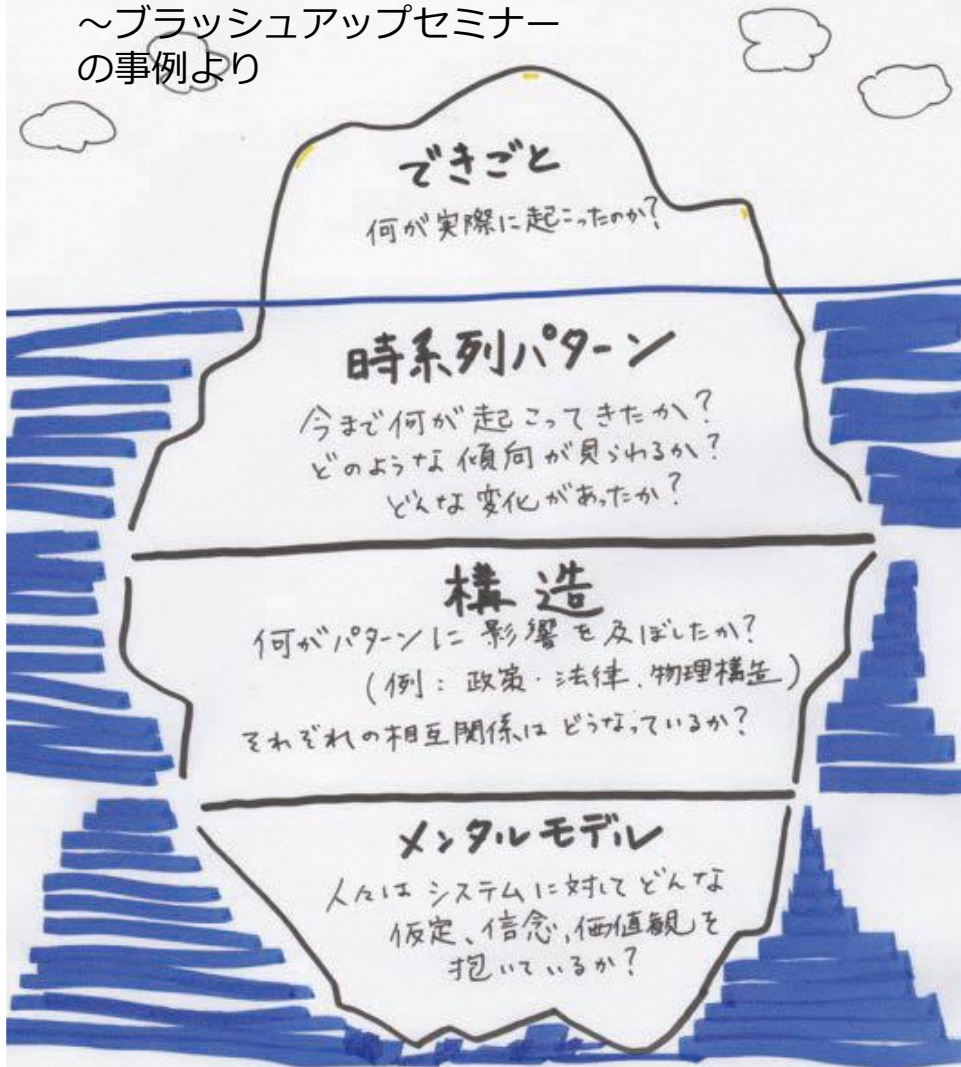 ～ブラッシュアップセミナー
の事例より
できごと
何が実際に起こったのか?
時系列パターン
今まで何が起こってきたか?
どのような傾向が見られるか?
どんな変化があったか?
構造
何がパターンに影響を及ぼしたか?
(例:政策・法律、物理構造)
それぞれの相互関係はどうなっているか?
メンタルモデル
人々はシステムに対してどんな
仮定、信念、価値観を
抱いているか?